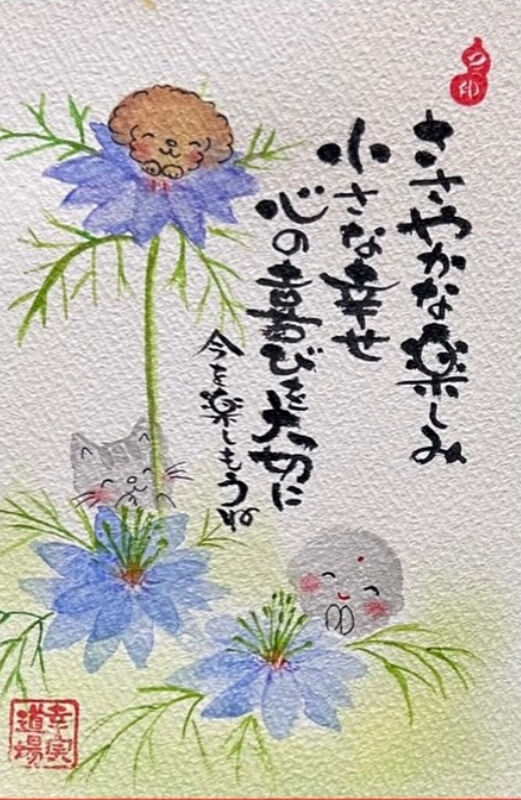 ささやかな楽しみ
小さな幸せ
心の喜びを大切に
今を楽しもうね
幸実
道場